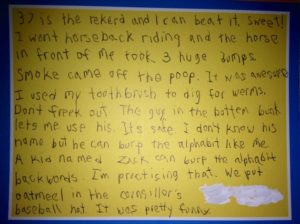 37 is the rekerd and I can beat it, sweet!
I went horseback riding and the horse
in front of me took 3 huge dumps.
Smoke came off the poop. It was awesome
I used my toothbrush to dig for werms.
Dont freek out The guy in the bottem bunk
lets me use his. It's safe I don't know his
name but he can burp the alphabit like me.
A kid named Zack can burp the alphabit
backwords. I'm practising that. We put
oatmeel in the
baseball hat. It was pretty funny.